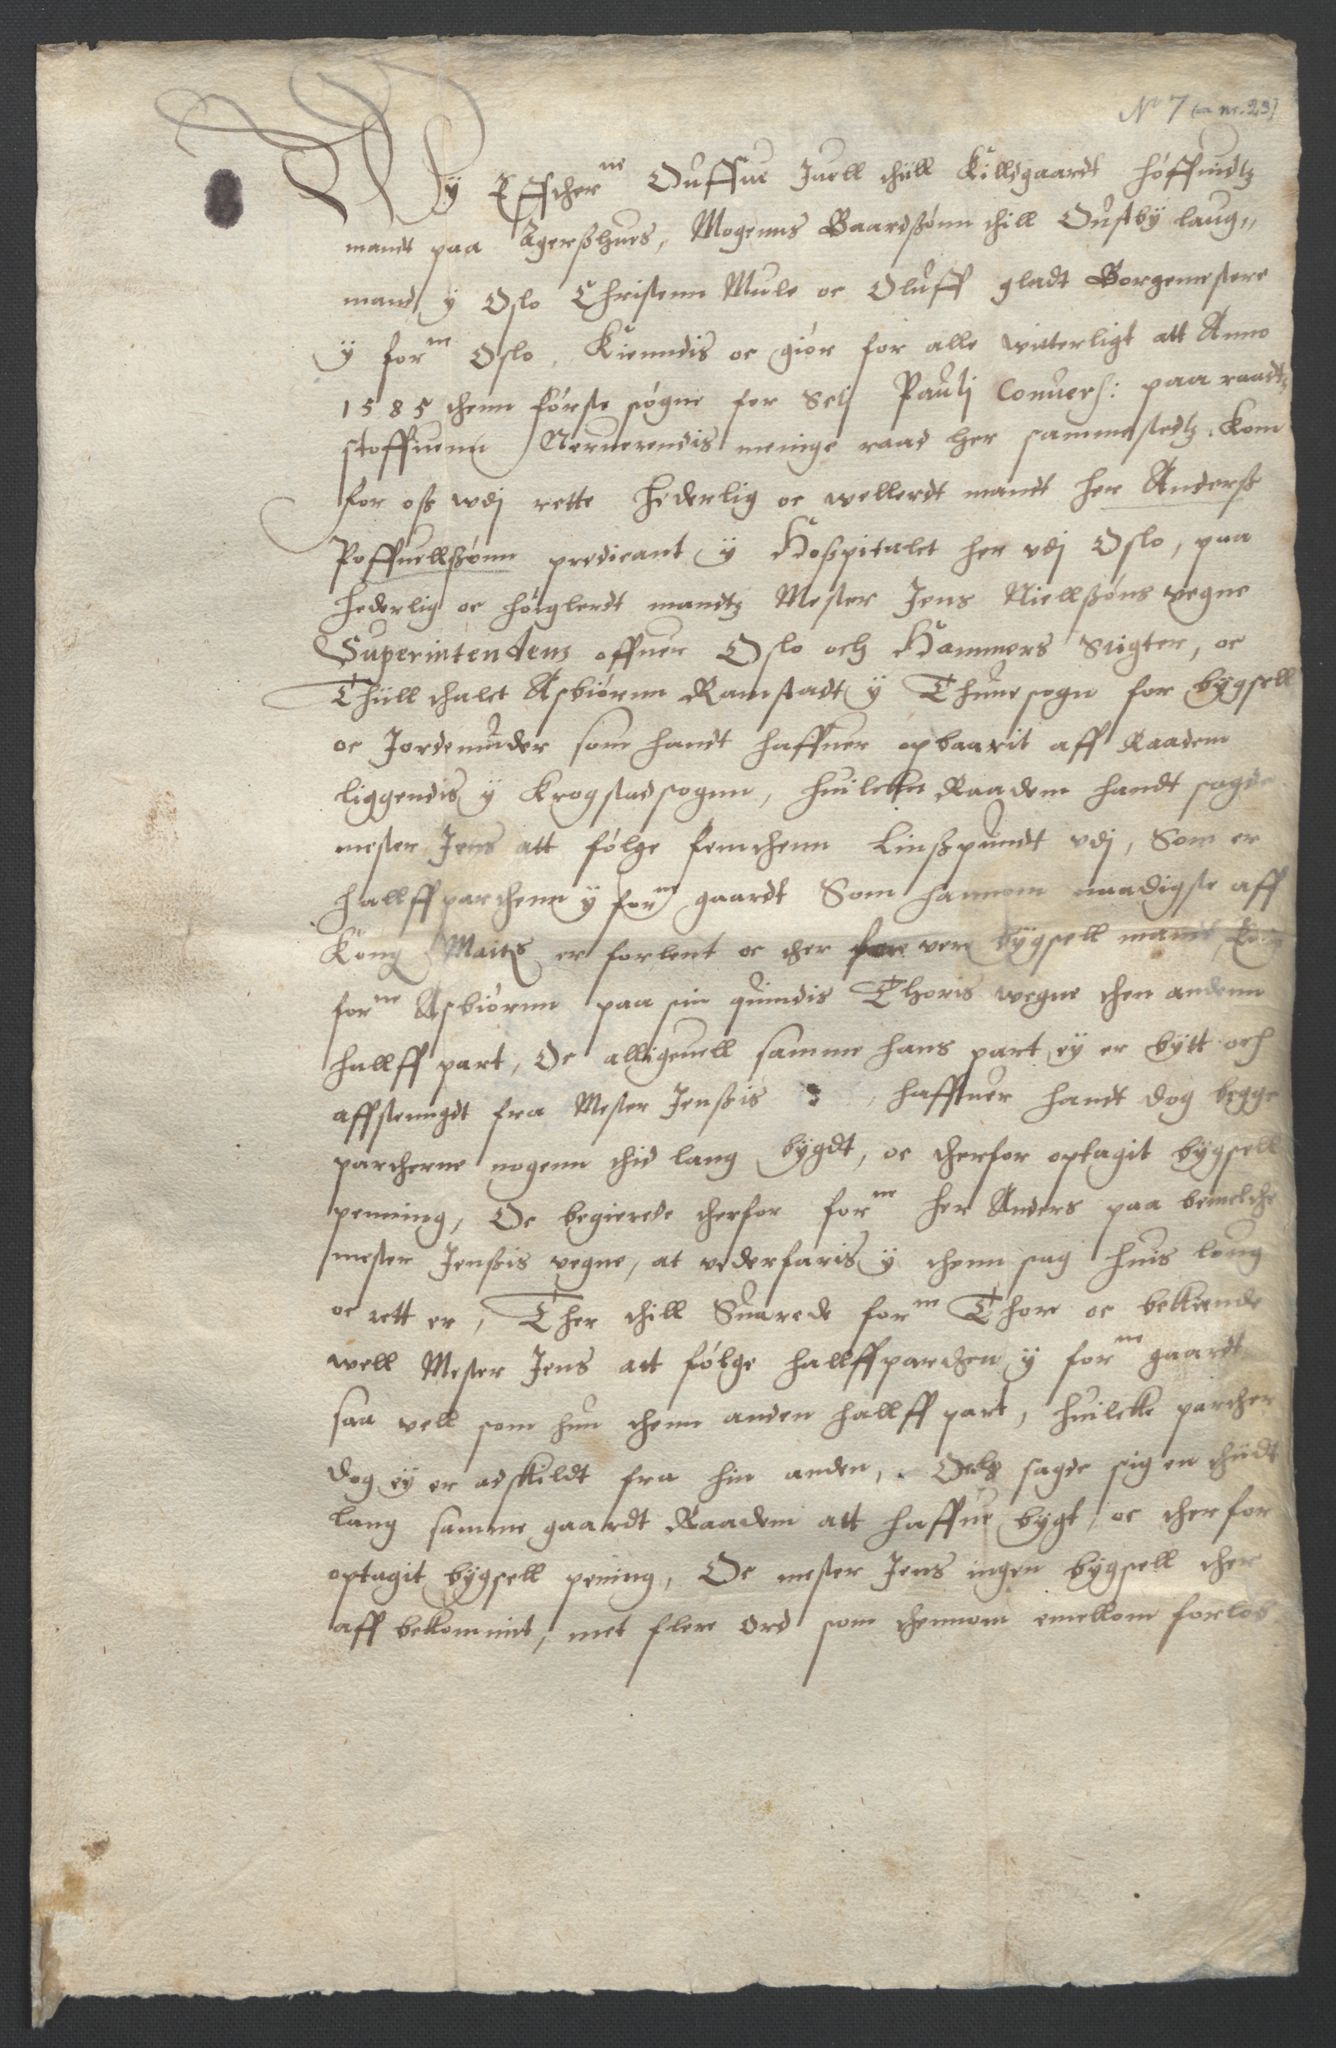 No 7 (a nr. 23)
Wy Effscherne Ouffue Juell thill Killdgaardt höffuidtz
mandt paa Agerßhues, Mogenns Baardßönn thill Oustby laug„
mand y Oslo Christenn Mule oc Oluff gladt Borgemestere
y forne Oslo, Kiendis oc giör for alle witterligt att Anno
1585 thenn förste sögne for Sctj Paulj Conuers: paa raadtz
stoffuenn Neruerendis menige raad her sammestedtz, Kom
for oß wdj rette hederlig oc wellerdt mandt her Anderß
Poffuellßönn predicant y Hoßpitalet her vdj Oslo, paa
hederlig oc höiglerdt mandtz Mester Jens Niellßöns vegne
Superintendens offuer Oslo och Hammers Stigter, oc
Thiill thalet Asbiörnn Ramstadt y Thune sogn for bygsell
oc Jordemuder som handt haffuer opbaarit aff Raadem
liggendis y Krogstadsogun, huilcken Raadem handt sagde
mester Jens att fölge femthenn Linßpundt vdj, Som er
hallffparthenn y forne gaardt Som hannom naadigste aff
Kong Maitz er forlent oc ther vere bygsell mandt
forne Asbiörnn paa sin quindis Thoris wegne then andenn
hallff part, Oc alligeuell samme hans part ey er bytt och
affstenngdt fra Mester Jenßis, haffuer handt dog begge
partherne nogenn thid lang bygdt, oc therfor optagit bygsell
penning, Oc begierede therfor forne her Anders paa bemelthe
mester Jenßis vegne, at vederfaris y thenn sag huis loug
oc rett er, Ther thill Suarede forne Thore oc bekiende
well Mester Jens att fölge hallffparthen y forne gaardt
saa vell som hun thenn anden hallff part, huilcke parther
dog ey er adskildt fra hin anden, Och sagde sig en thiidt
lang samme gaardt Raadem att haffue bygt, oc therfor
optagit bygsell pening, Oc mester Jens ingen bygsell ther
aff bekommit, met flere ord som thennom emellom forlob